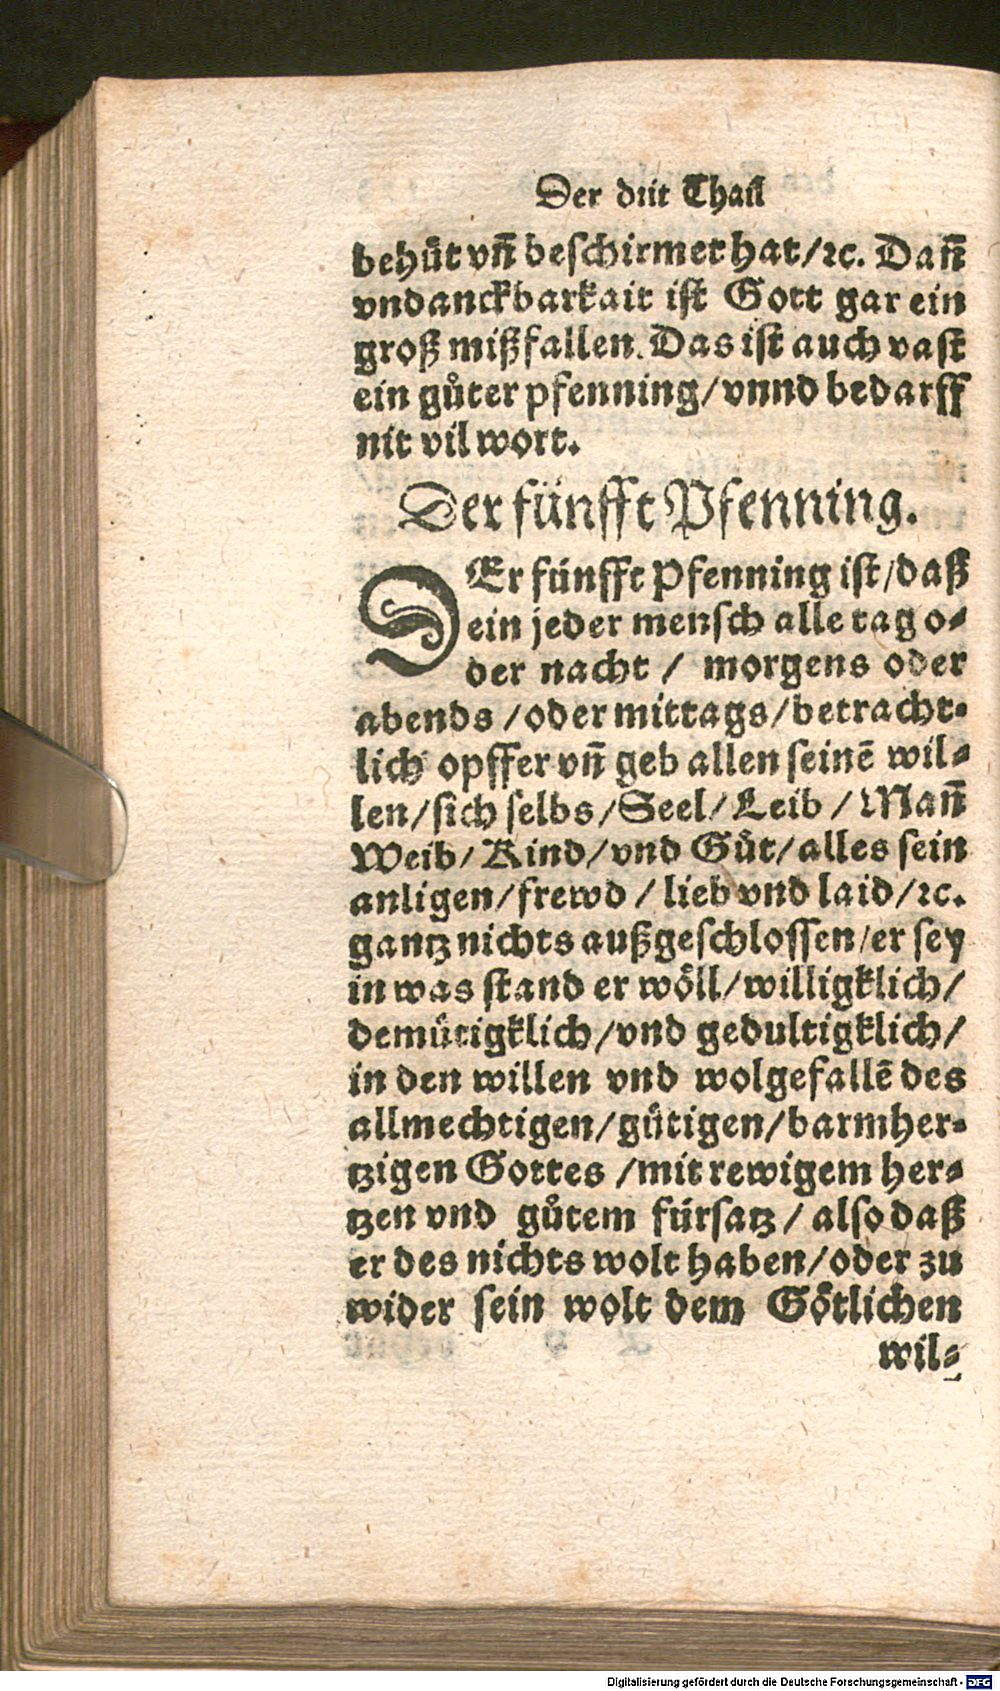 Der drit Thail
behuͤt vn̄ beschirmet hat/ꝛc. Dañ
vndanckbarkait ist Gott gar ein
groß mißfallen. Das ist auch vast
ein guͦter pfenning/vnnd bedarff
nit vil wort.
Der fünfft Pfenning.
DEr fünfft Pfenning ist/daß
ein jeder mensch alle tag o⸗
der nacht / morgens oder
abends /oder mittags/betracht⸗
lich opffer vn̄ geb allen seinē wil⸗
len/sich selbs/Seel/Leib / Mañ
Weib/Kind/vnd Guͦt/alles sein
anligen/frewd / lieb vnd laid/ꝛc.
gantz nichts außgeschlossen/er sey
in was stand er woͤll/willigklich/
demuͤtigklich/vnd gedultigklich/
in den willen vnd wolgefallē des
allmechtigen/guͤtigen/barmher⸗
tzigen Gottes /mit rewigem her⸗
tzen vnd guͦtem fürsatz / also daß
er des nichts wolt haben/oder zu
wider sein wolt dem Goͤtlichen
wil⸗
Digitalisierung gefördert durch die Deutsche Forschungsgemeinschaft - DFG